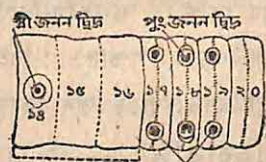 স্ত্রী জনন ছিদ্র পুং জনন ছিদ্র
১৪ ১৫ ১৬ ১৭ ১৮ ১৯ ২০